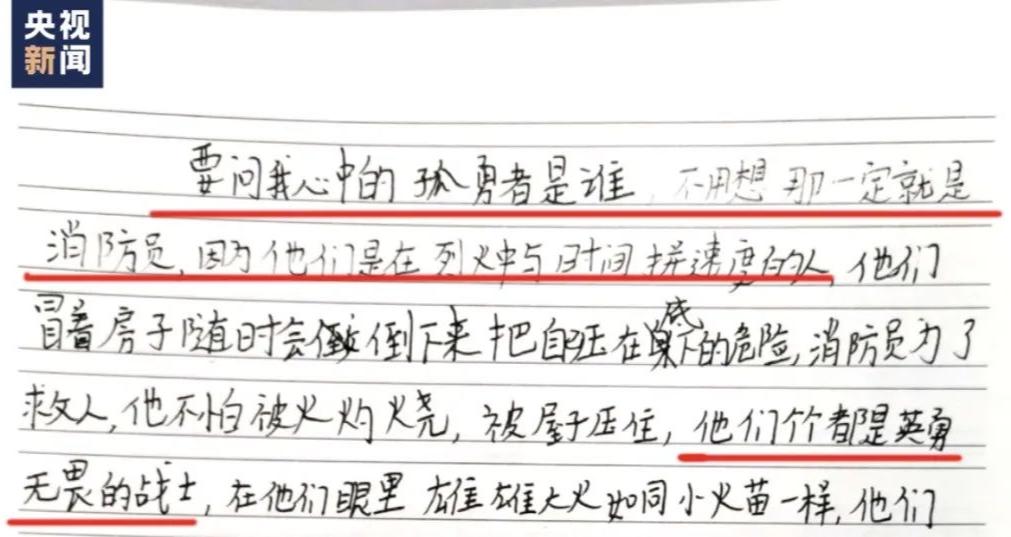 央视
新闻
要问我心中的孤勇者是谁,不用想 那一定就是
消防员,因为他们是在烈火中与时间拼速度的人,他们
冒着房子随时会倒下来把自己压在底下的危险,消防员为了
救人,他不怕被火灼烧,被屋子压住,他们个个都是英勇
无畏的战士,在他们眼里 雄雄大火如同小火苗一样,他们